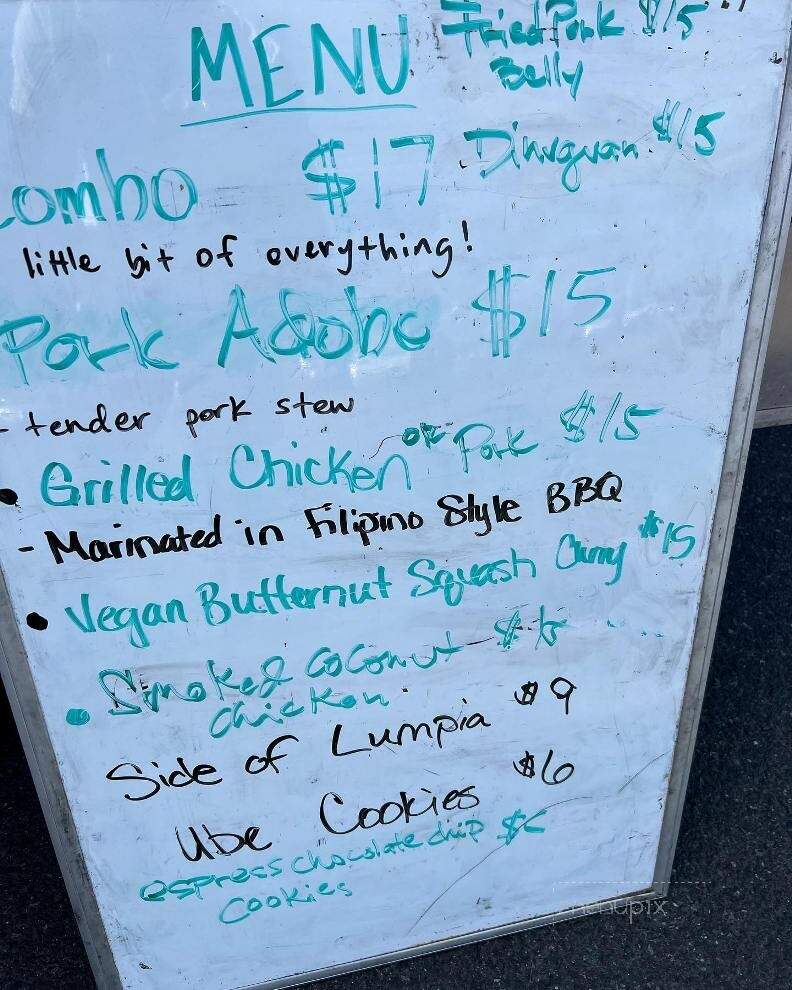 MENU
Fried Pork $15
Belly
Combo $17
Dinuguan $15
little bit of everything!
Pork Adobo $15
- tender pork stew
• Grilled Chicken or Pork $15
- Marinated in Filipino Style BBQ
• Vegan Butternut Squash Curry $15
• Smoked Coconut
Chicken
Side of Lumpia $9
Ube Cookies $6
espress chocolate chip
Cookies
menupix